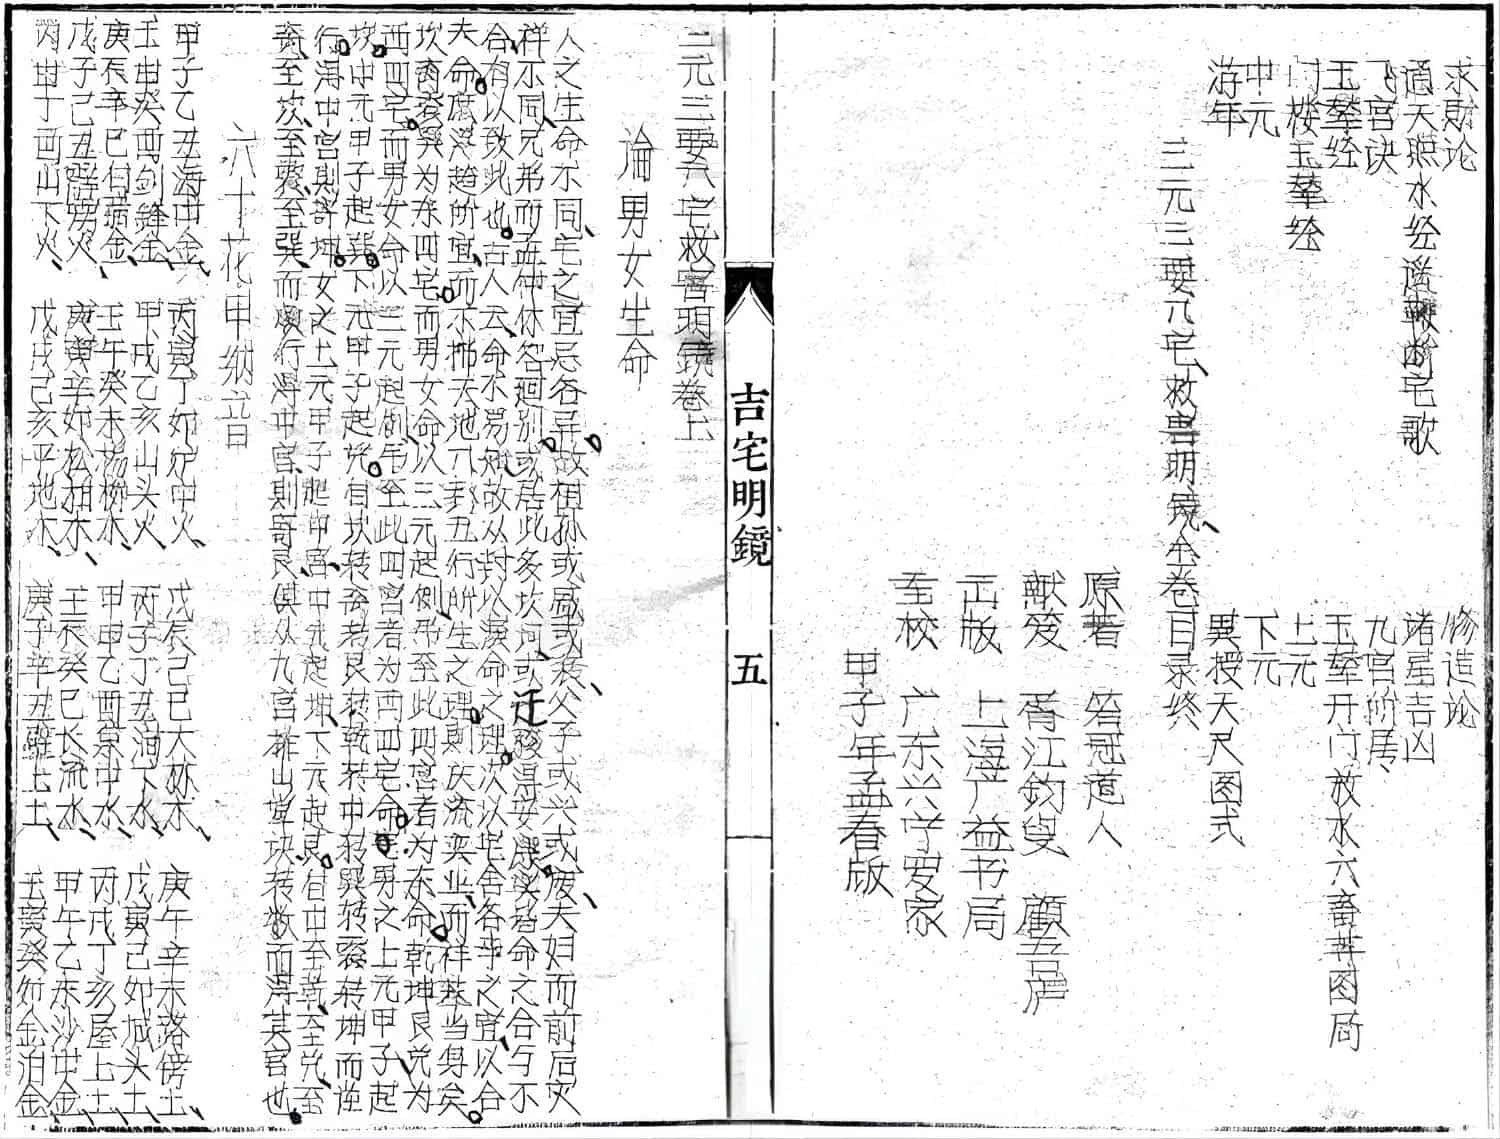 求財论　修造论
通天照水经　诸星吉凶
飞宫诀　九宫阶居
玉辇经　玉辇开门放水六畜井图局
门楼玉辇经　上元
中元　下元
游年　異授天尺图式
三元三要八宅救害明镜全卷目录终
原著　箬冠道人
献笈　胥江钧叟　顧吾庐
出版　上海广益书局
至校　广东兴宁罗家
甲子年孟春版
吉宅明鏡
五
三元三要八宅救害明鏡卷上
論男女生命
人之生命不同宅之宜忌各异故祖孙或父子或兴或废夫妇而前后灾
祥不同兄弟而孟仲休咎迴别或居此多坎坷或迁骏得安康奖皆命之合与不
合有以致此也古人云命不易知故从封以演命之理次以宅舍各乎之宜以合
夫命庶得趋所宜而不拂天地八卦五行所生之理則庆流奕业而祥萃当身矣
坎离震巽为东四宅而男女命以三元起例吊至此四宫者为东命乾坤艮兑为
西四宅而男女命以三元起例吊至此四宫者为西四宅命宅男之上元甲子起
坎中元甲子起巽下元甲子起兑自坎转离转艮转兑转乾转中转巽转震转坤而逆
行得中宫則寄坤女之上元甲子起中宫中元起坤下元起艮自中至乾至兑至
六十花甲纳音
甲子乙丑海中金　丙寅丁卯炉中火　戊辰己巳大林木　庚午辛未路傍土
壬申癸酉剑鋒金　甲戌乙亥山头火　丙子丁丑涧下水　戊寅己卯城头土
庚辰辛巳白蜡金　壬午癸未楊柳木　甲申乙酉泉中水　丙戌丁亥屋上土
戊子己丑霹雳火　庚寅辛卯松柏木　壬辰癸巳长流水　甲午乙未沙中金
丙申丁酉山下火　戊戌己亥平地木　庚子辛丑壁上土　壬寅癸卯金泊金